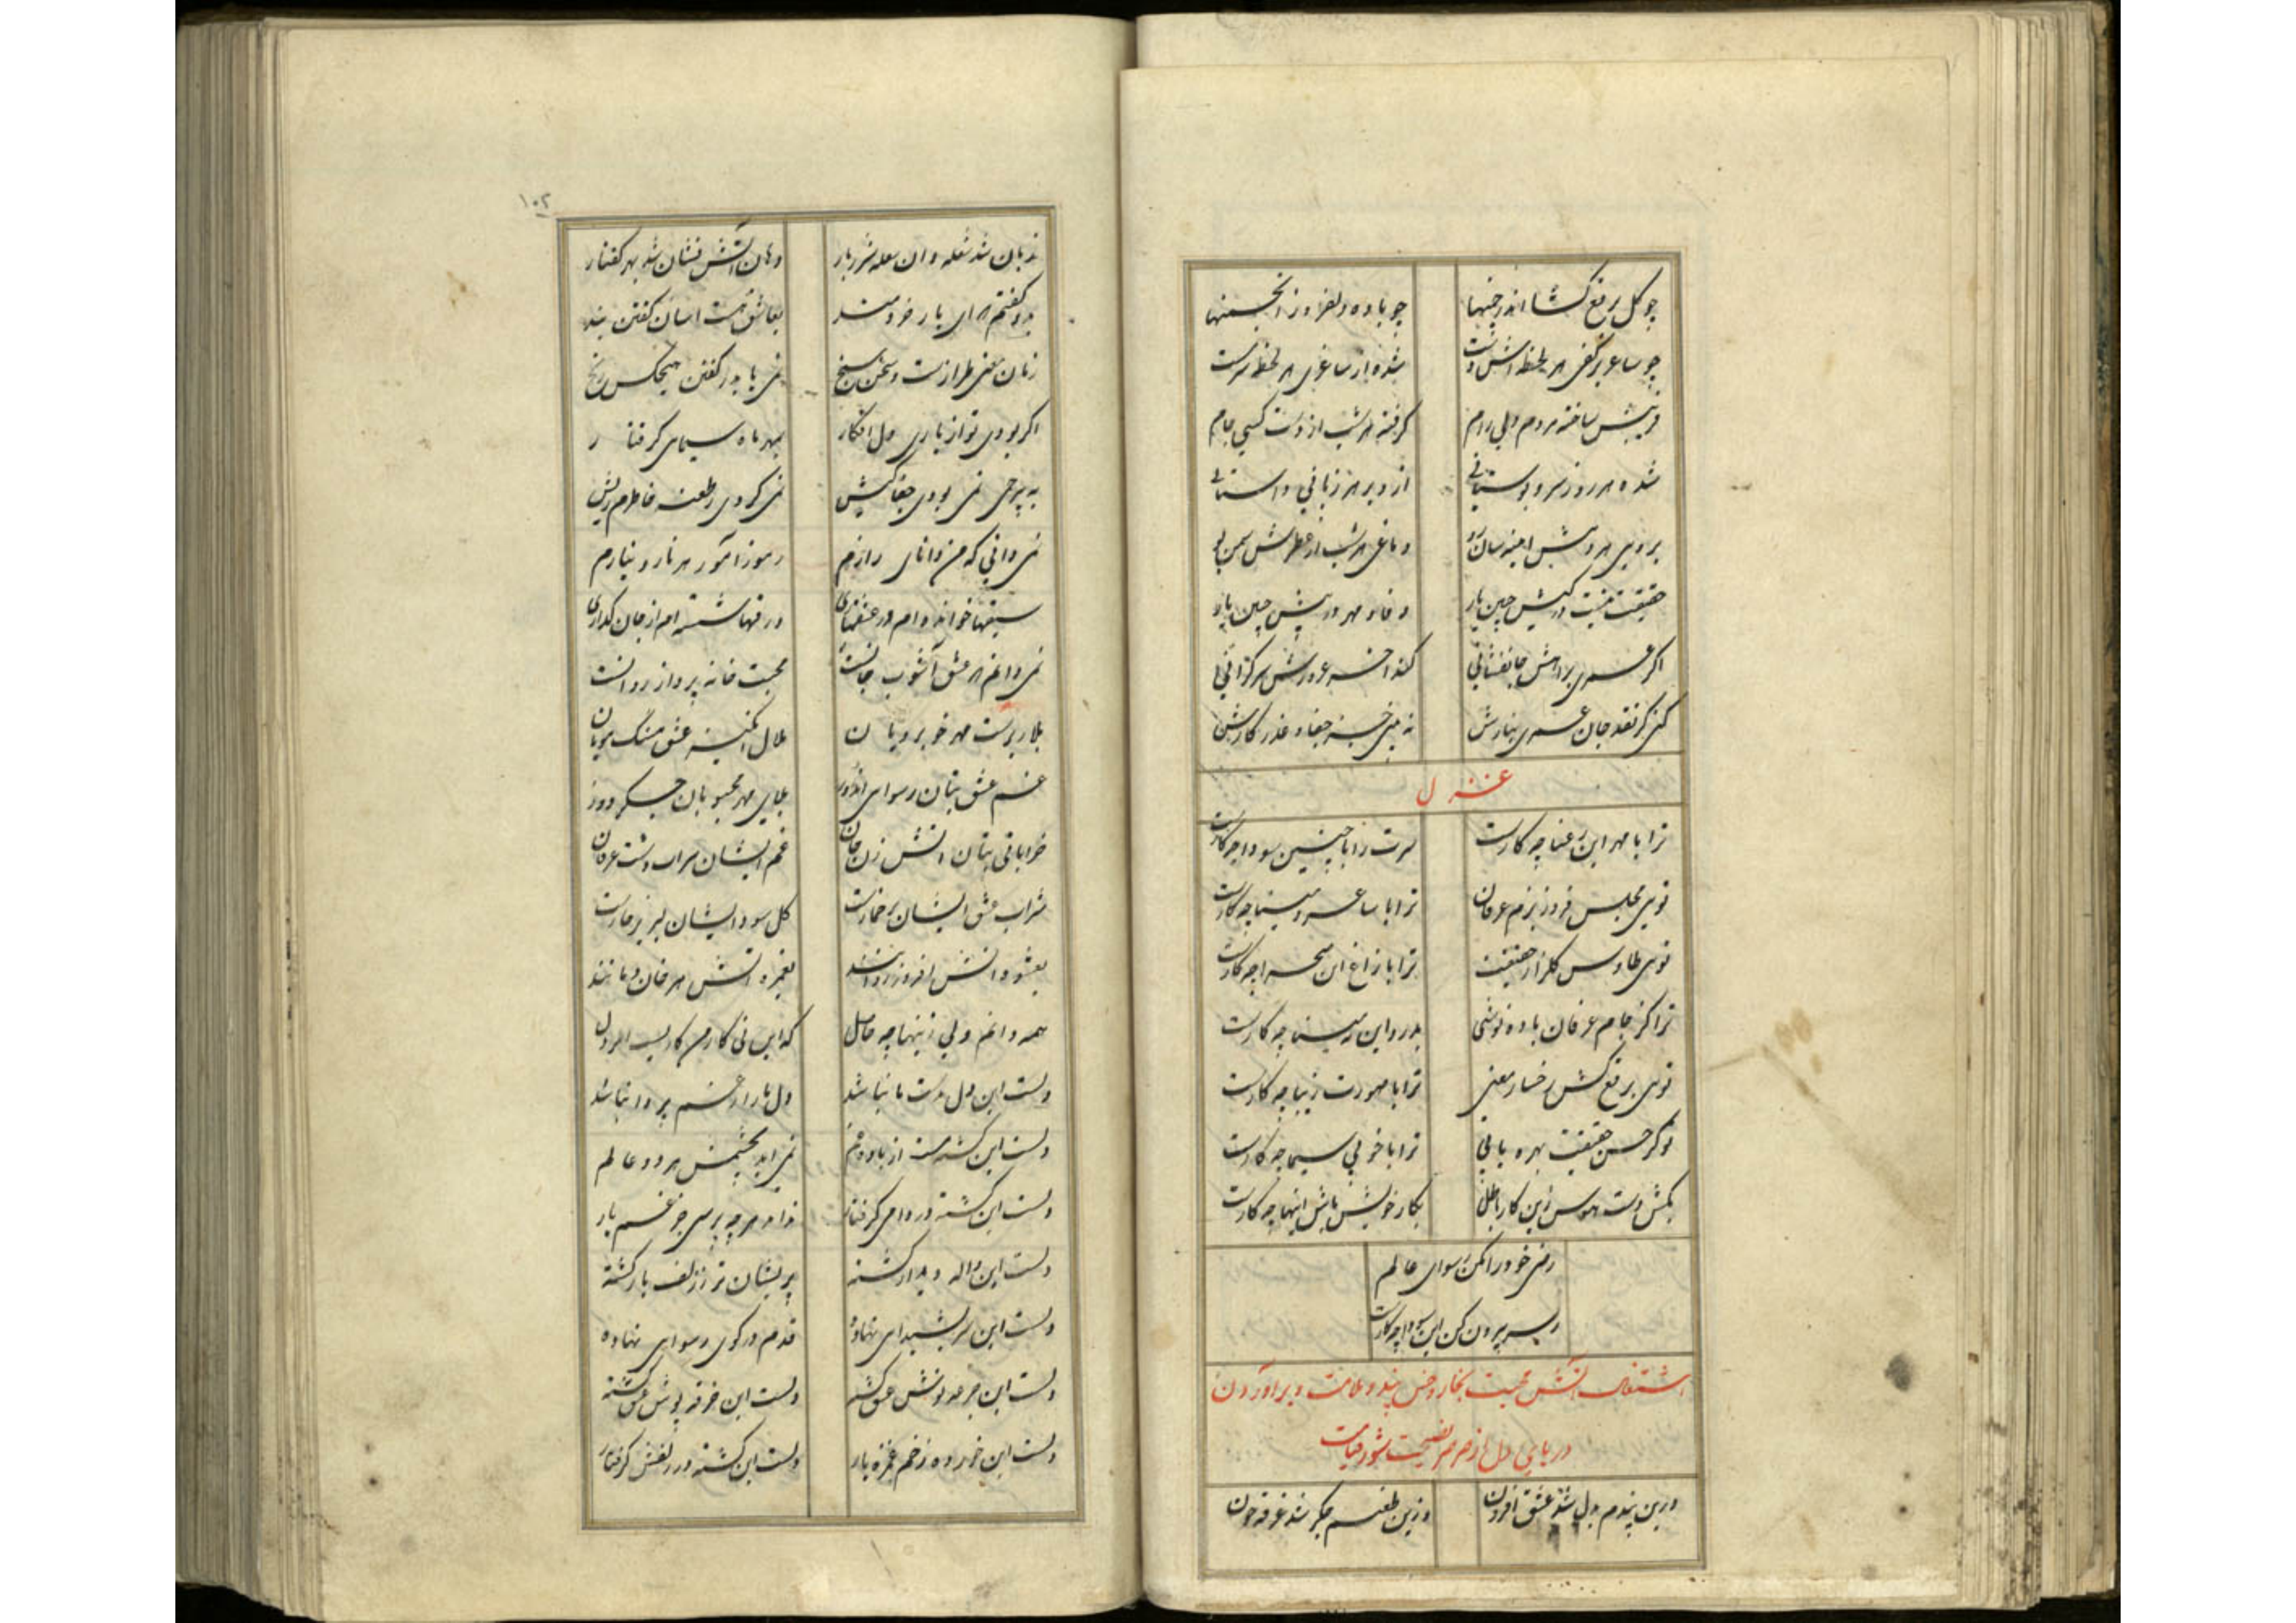 چو کل برقع کشا اندر چمنها چو باده دلفروز انجمنها
چو ساغر بر کفی هر لحظه اش دست شده از ساغری هر لحظه سرمست
فریبش ساخته مردم ولی رام کرفته هر شب از دست کسی جام
شده هر روز سرو بوستانی ازو بر هر زبانی داستانی
بروی هر دمش اینه سان رو دماغی هر شب از عطرش سمن بو
حقیقت نیست در کیش چنین یار وفا و مهر در پیش چنین یار
اکر عمری براهش جانفشانی کند اخر غرورش سرکرانی
کنی کر نقد جان عمری نثارش نه بینی جز جفا و غدر کارش
غزل
ترا با مهر این رعنا چه کارست سرت را با چنین سودا چه کارست
توی مجلس فروز بزم عرفان ترا با ساغر و مینا چه کارست
توی طاوس کلزار حقیقت ترا با زاغ این صحرا چه کارست
ترا کز جام عرفان باده نوشی بدرد این مینا چه کارست
توی برقع کش رخسار معنی ترا با صورت زیبا چه کارست
تو کز حسن حقیقت بهره یابی ترا با خوبی سیما چه کارست
بکش دست هوس زین کار باطل بکار خویش باش اینها چه کارست
رضی خود را مکن رسوای عالم
ز سر بیرون کن این سودا چه کارست
اشتعال اتش محبت بخار و خس پند و ملامت و براوردن
دریای دل از صرصر نصیحت شور قیامت
ازین پندم بدل شد عشق افزون وزین طعنم جکر شد غرقه خون
زبان شد شعله و ان شعله شرربار دهان اتش فشان شد بهر کفتار
بدو کفتم که ای یار خردمند بعاشق هست اسان کفتن پند
زبان معنی طرازست و سخن سنج نمی یابد ز کفتن هیچکس رنج
اکر بودی تو از یاری دل افکار بمهر ماه سیمای کرفتار
به بیرحمی نمی بودی جفا کیش نمی کردی ز طعنه خاطرم ریش
نمی دانی که من دانای رازم رموز اموز هر ناز و نیازم
سبقها خوانده ام در عشقبازی ورقها شسته ام از جان کدازی
نمی دانم که عشق آشوب جانست محبت خانه پرداز روانست
بلا ریزست مهر خوبرویان ملال انکیز عشق مشک مویان
غم عشق بتان رسوای اندوز بلای مهر محبوبان جکر دوز
خرابات بتان اتش زن جان غم ایشان سراب دشت عرفان
شراب عشق ایشان پر خمارست کل سودای ایشان لبریز خارست
بعشوه اتش افروز روانند بغمزه اتش هر خان و مانند
همه دانم ولی زینها چه حاصل که این نی کار من کاریست از دل
دلست این دل بدست ما نباشد دل ما را ز غم پروا نباشد
دلست این کشته مست از باده غم نمی اید بچشمش هر دو عالم
دلست این کشته در دامی کرفتار نداند هر چه پرسی جز غم یار
دلست این واله دیدار کشته پریشان تر ز زلف یار کشته
دلست این سر بشیدای نهاده قدم در کوی رسوای نهاده
دلست این جرعه نوش عشق کشته دلست این خرقه پوش عشق کشته
دلست این خورده زخم غمزه یار دلست این کشته در زلفش کرفتار
۱۰۲